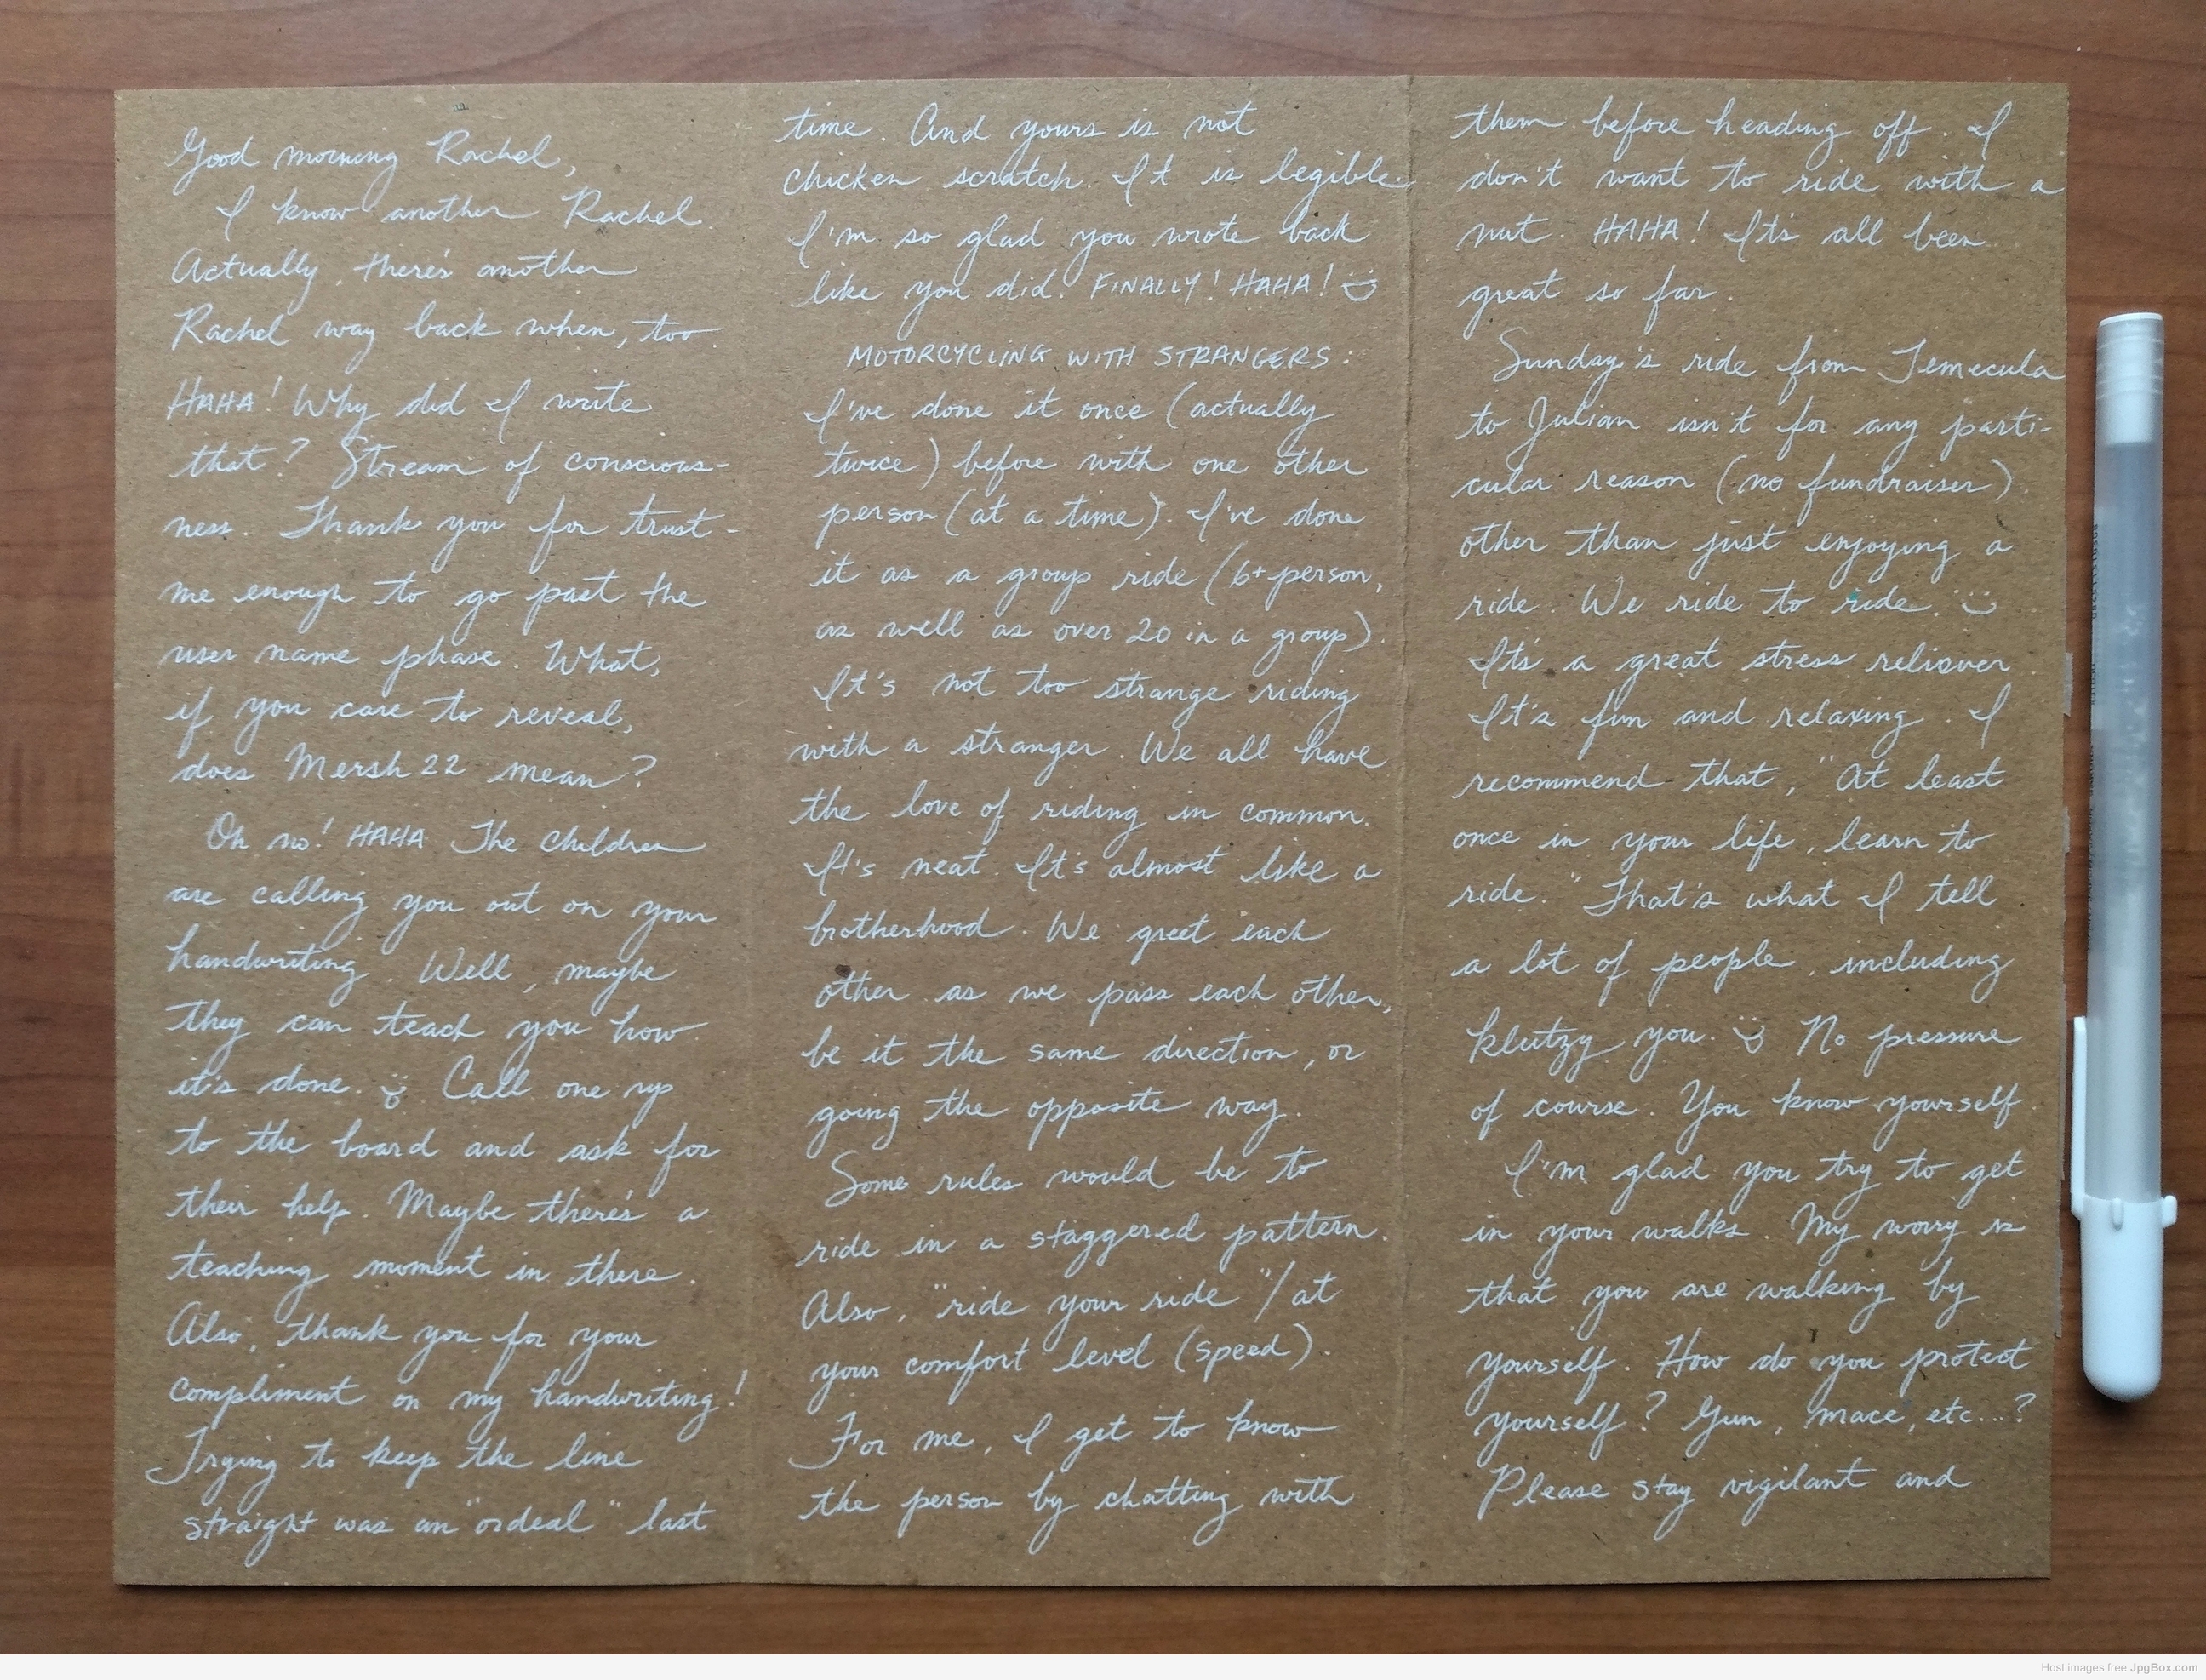 Good morning Rachel,
I know another Rachel.
Actually, there's another
Rachel way back when, too.
HAHA! Why did I write
that? Stream of conscious-
ness. Thank you for trust-
me enough to go past the
user name phase. What,
if you care to reveal,
does Mersh 22 mean?
Oh no! HAHA The children
are calling you out on your
handwriting. Well, maybe
they can teach you how
it's done. Call one up
to the board and ask for
their help. Maybe there's a
teaching moment in there.
Also, thank you for your
compliment on my handwriting!
Trying to keep the line
straight was an "ordeal" last
time. And yours is not
chicken scratch. It is legible.
I'm so glad you wrote back
like you did. FINALLY! HAHA!
MOTORCYCLING WITH STRANGERS:
I've done it once (actually
twice) before with one other
person (at a time). I've done
it as a group ride (6+ person,
as well as over 20 in a group).
It's not too strange riding
with a stranger. We all have
the love of riding in common.
It's neat. It's almost like a
brotherhood. We greet each
other as we pass each other,
be it the same direction, or
going the opposite way.
Some rules would be to
ride in a staggered pattern.
Also, "ride your ride"/at
your comfort level (speed).
For me, I get to know
the person by chatting with
them before heading off. I
don't want to ride with a
nut. HAHA! It's all been
great so far.
Sunday's ride from Temecula
to Julian isn't for any parti-
cular reason (no fundraiser)
other than just enjoying a
ride. We ride to ride.
It's a great stress reliever
It's fun and relaxing. I
recommend that, "At least
once in your life, learn to
ride." That's what I tell
a lot of people, including
klutzy you. No pressure
of course. You know yourself.
I'm glad you try to get
in your walks. My worry is
that you are walking by
yourself. How do you protect
yourself? Gun, mace, etc...?
Please stay vigilant and
Host images free JpgBox.com